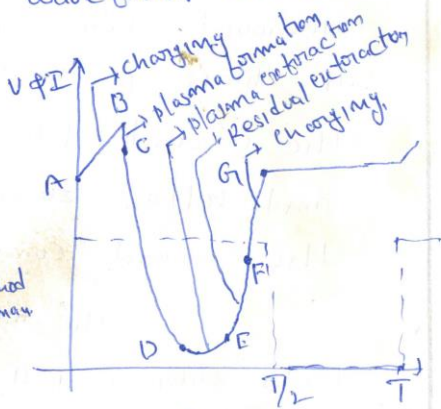 charging
plasma formation
plasma extoraction
Residual extoraction
charging.
V & I
B
C
G
A
F
D
E
T/2
T